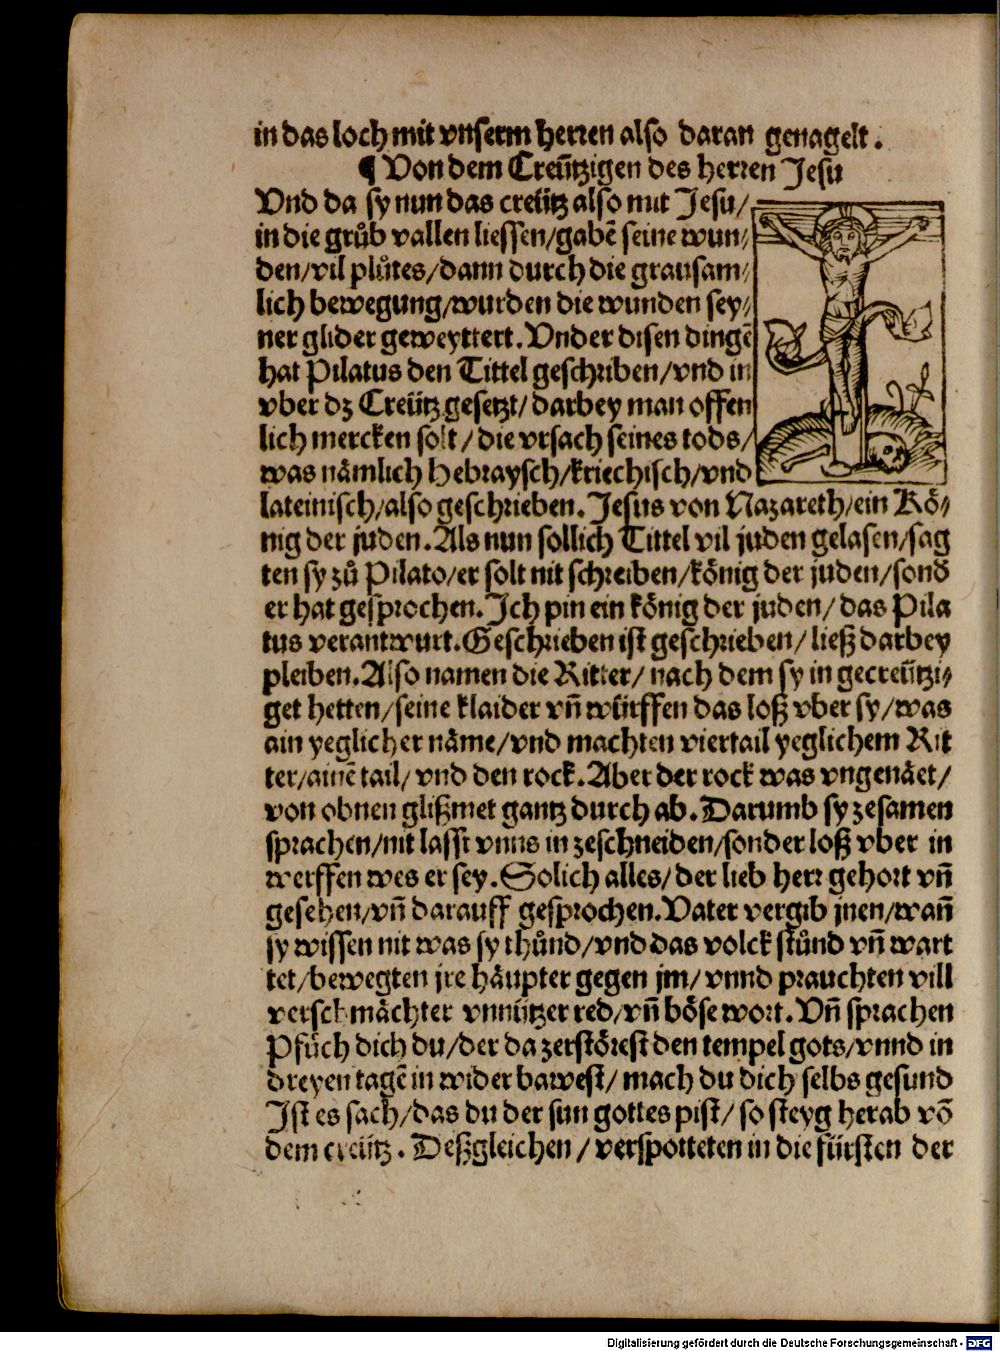 in das loch mit vnserm herren also daran genagelt.
¶ Von dem Creützigen des herren Jesu
Vnd da sy nun das creütz also mit Jesu/
in die grůb vallen liessen/gabē seine wun⸗
den/vil plůtes/dann durch die grausam⸗
lich bewegung/wurden die wunden sey⸗
ner glider geweyttert. Vnder disen dingē
hat Pilatus den Tittel geschriben/vnd in
vber dz Creütz gesetzt/darbey man offen
lich mercken solt/die vrsach seines tods/
was nämlich Hebraysch/kriechisch/vnd
lateinisch/also geschrieben. Jesus von Nazareth/ein Kö⸗
nig der juden. Als nun sollich Tittel vil juden gelasen/sag
ten sy zů Pilato/er solt nit schreiben/könig der juden/sond
er hat gesprochen. Ich pin ein könig der juden/das Pila
tus verantwurt. Geschrieben ist geschrieben/ließ darbey
pleiben. Also namen die Ritter/nach dem sy in gecreützi⸗
get hetten/seine klaider vn̄ würffen das loß vber sy/was
ain yeglicher näme/vnd machten viertail yeglichem Rit
ter/ainē tail/vnd den rock. Aber der rock was vngenäet/
von obnen glißmet gantz durch ab. Darumb sy zesamen
sprachen/nit lasst vnns in zeschneiden/sonder loß vber in
werffen wes er sey. Solich alles/der lieb herr gehort vn̄
gesehen/vn̄ darauff gesprochen. Vater vergib jnen/wan̄
sy wissen nit was sy thůnd/vnd das volck stůnd vn̄ wart
tet/bewegten jre häupter gegen jm/vnnd prauchten vill
verschmächter vnnützer red/vn̄ böse wort. Vn̄ sprachen
Pfüch dich du/der da zerstörest den tempel gots/vnnd in
dreyen tagē in wider bawest/mach du dich selbs gesund
Ist es sach/das du der sun gottes pist/so steyg herab vō
dem creütz. Deßgleichen/verspotteten in die fürsten der
Digitalisierung gefördert durch die Deutsche Forschungsgemeinschaft - DFG